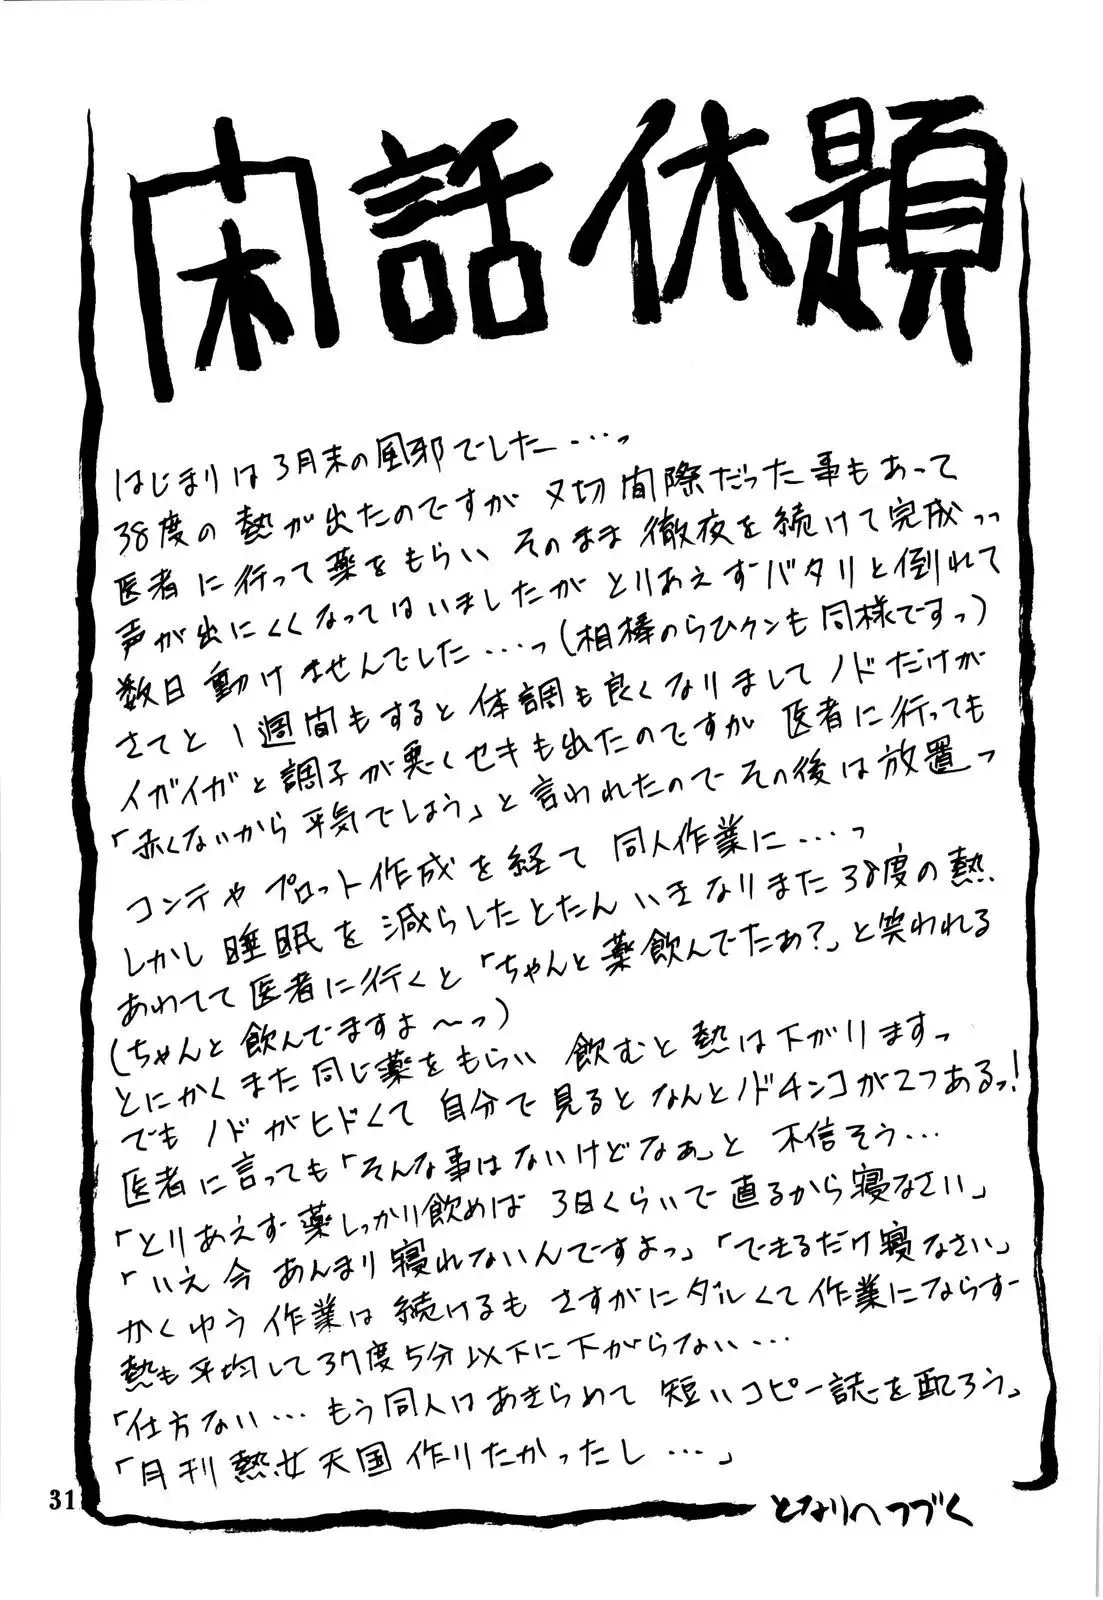 閑話休題
はじまりは3月末の風邪でした…っ
38度の熱が出たのですが〆切間際だった事もあって
医者に行って薬をもらいそのまま徹夜を続けて完成っっ
声が出にくくなってはいましたがとりあえずバタリと倒れて
数日動けませんでした…っ(相棒のらひクンも同様ですっ)
さてと1週間もすると体調も良くなりましてノドだけが
イガイガと調子が悪くセキも出たのですが医者に行っても
「赤くないから平気でしょう」と言われたのでその後は放置っ
コンテやプロット作成を経て同人作業に…っ
しかし睡眠を減らしたとたんいきなりまた38度の熱
あわてて医者に行くと「ちゃんと薬飲んでたぁ?」と笑われる
(ちゃんと飲んでますよ〜っ)
とにかくまた同じ薬をもらい飲むと熱は下がりますっ
でもノドがヒドくて自分で見るとなんとノドチンコが2つあるっ!
医者に言っても「そんな事はないけどなぁ」と不信そう…
「とりあえず薬しっかり飲めば3日くらいで直るから寝なさい」
「いえ今あんまり寝れないんですよっ」「できるだけ寝なさい」
かくゆう作業は続けるもさすがにダルくて作業にならず
熱も平均して37度5分以下に下がらない…
「仕方ない…もう同人はあきらめて短いコピー誌を配ろう」
「月刊熱女天国作りたかったし…」
となりへつづく
31